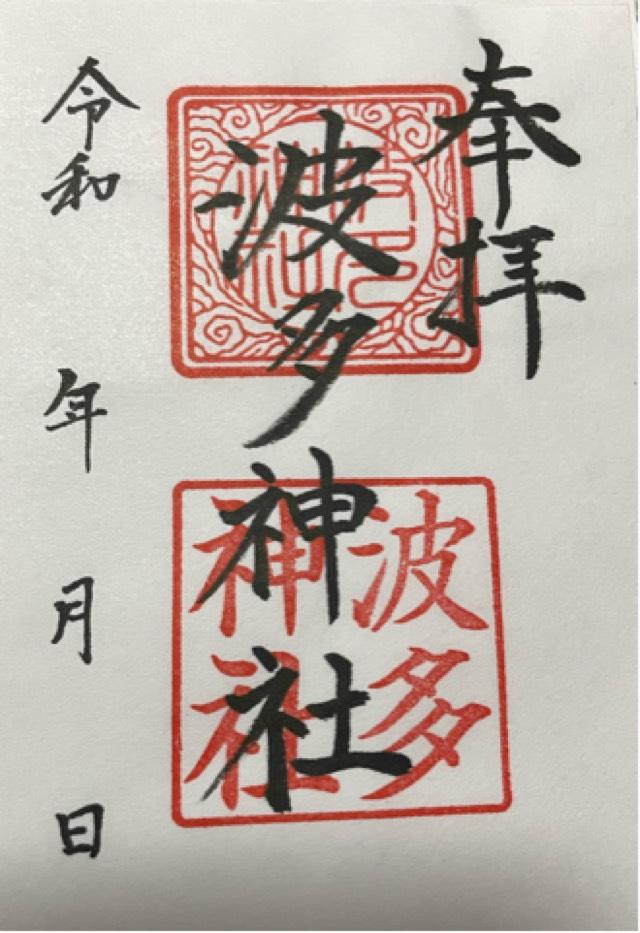 奉拝
波多神社
波多
神社
令和 年 月 日